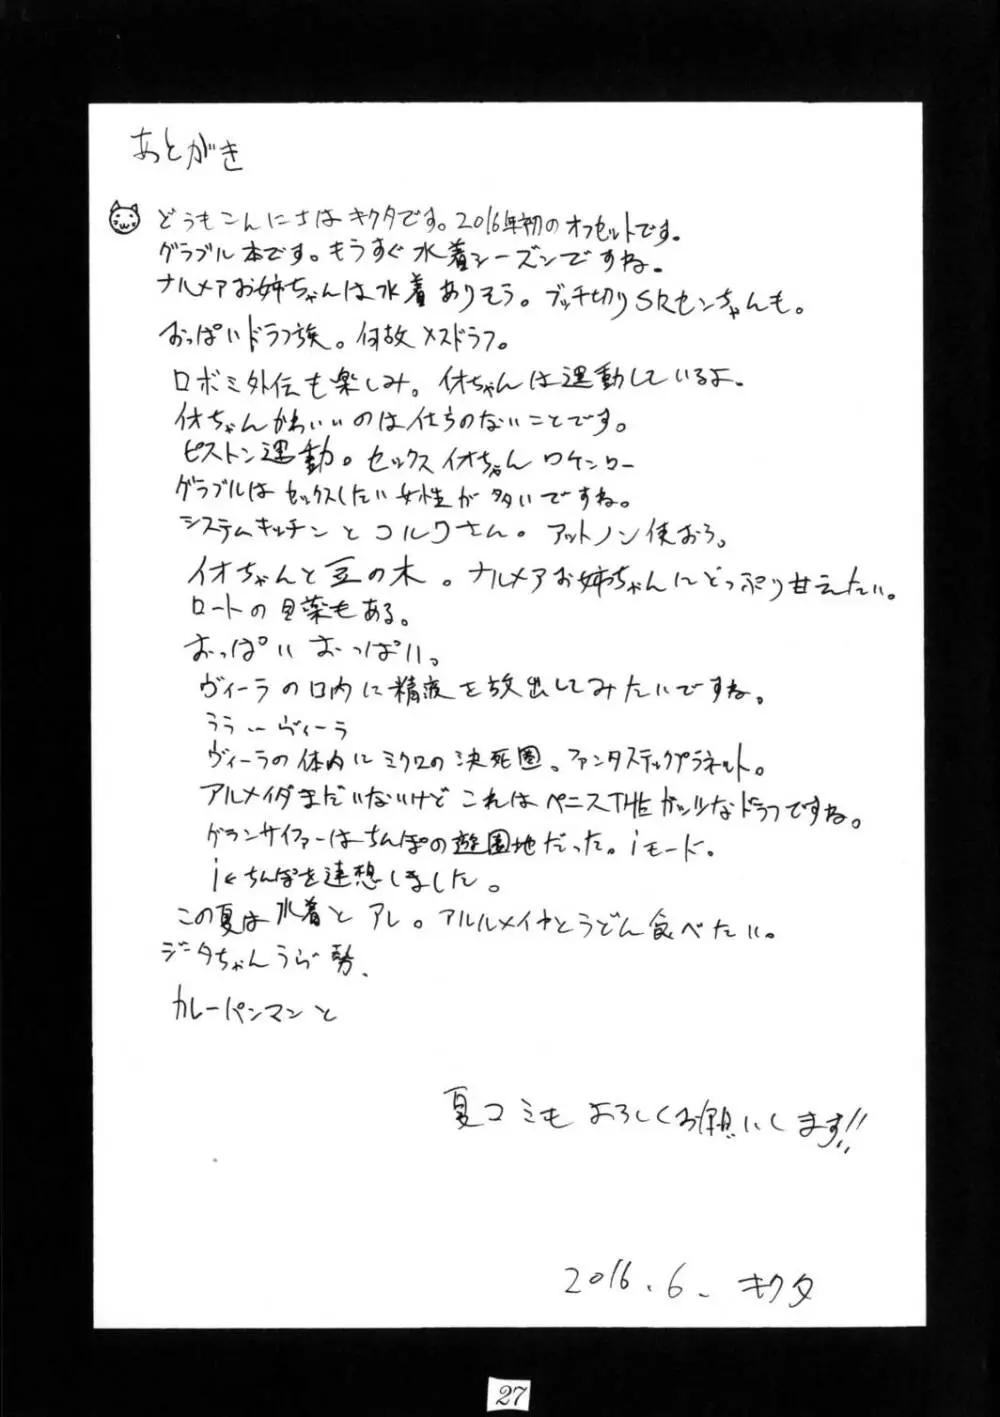 あとがき
どうもこんにちは キクタです。2016年初のオフセットです。
グラブル本です。もうすぐ水着シーズンですね。
ナルメアお姉ちゃんは水着ありそう。ブッチ切りSRセンちゃんも。
おっぱいドラフ族。何故メスドラフ。
ロボミ外伝も楽しみ。
グラブルはセックスしたい女性が多いですね。
システムキッチンとコルワさん。アットノン使おう。
イオちゃんと豆の木。ナルメアお姉ちゃんにどっぷり甘えたい。
ロートの目薬もある。
おっぱい おっぱい。
ヴィーラの口内に精液を放出してみたいですね。
ララ ヴィーラ
ヴィーラの体内にミクロの決死圏。ファンタスティックプラネット。
アルメイダまだいないけど これはペニスTHEガッツなドラフですね。
グランサイファーはちんぽの遊園地だった。iモード。
i←ちんぽを連想しました。
この夏は水着とアレ。アルルメイヤとうどん食べたい。
ジータちゃん 勢、
カレーパンマンと
夏コミもよろしくお願いします!!
2016.6. キクタ
27